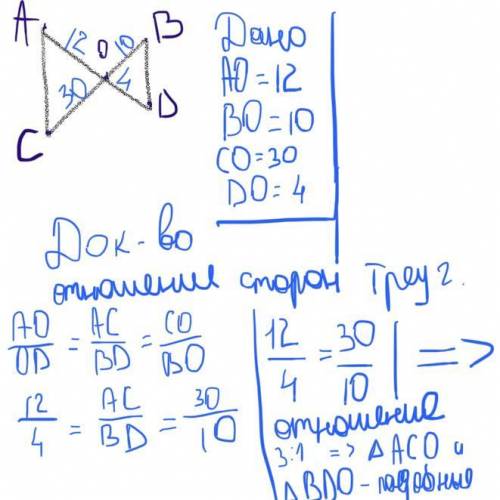 A 12 O 10 B
30 4
C D
Дано
AO = 12
BO = 10
CO = 30
DO = 4
Док-во
отношение сторон треуг.
AO/OD = AC/BD = CO/BO
12/4 = AC/BD = 30/10
12/4 = 30/10 | =>
отношение
3:1 => △ ACO и
△ BDO - подобные